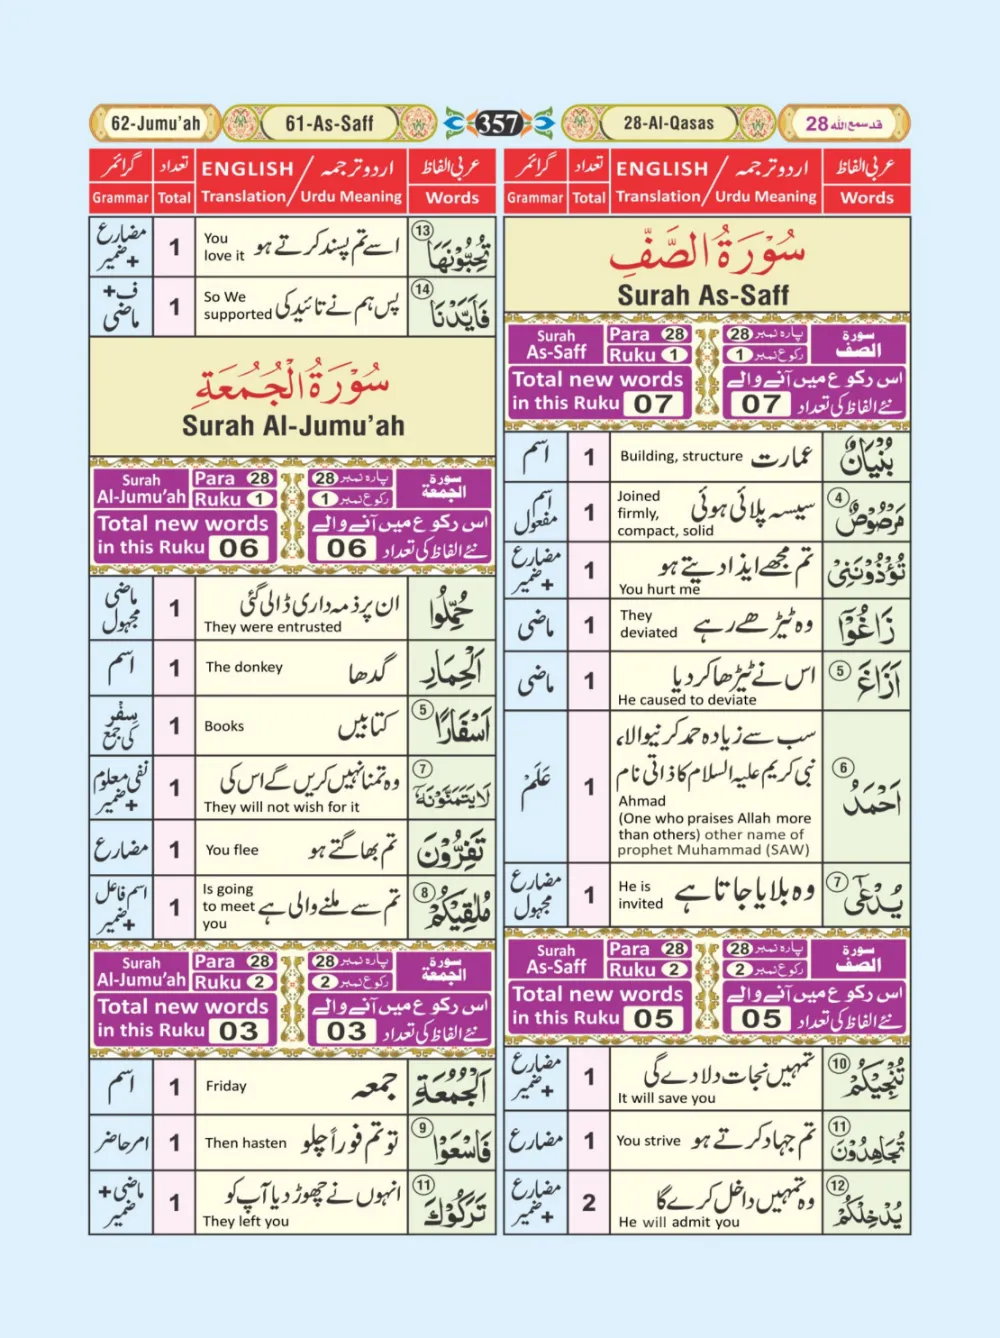 62-Jumu'ah 61-As-Saff 357 28-Al-Qasas قد سمع الله 28
عربی الفاظ اردو ترجمہ / ENGLISH تعداد گرائمر
Words Urdu Meaning / Translation Total Grammar
سُوْرَةُ الصَّفِّ
Surah As-Saff
Surah As-Saff Para 28 Ruku 1
سورة الصف پارہ نمبر 28 رکوع نمبر 1
Total new words in this Ruku 07
اس رکوع میں آنے والے نئے الفاظ کی تعداد 07
بُنْيَانٌ عمارت Building, structure 1 اسم
مَّرْصُوْصٌ 4 سیسہ پلائی ہوئی Joined firmly, compact, solid 1 اسم مفعول
تُؤْذُوْنَنِيْ تم مجھے ایذا دیتے ہو You hurt me 1 مضارع + ضمیر
زَاغُوْٓا وہ ٹیڑھے رہے They deviated 1 ماضی
اَزَاغَ 5 اس نے ٹیڑھا کر دیا He caused to deviate 1 ماضی
اَحْمَدُ 6 سب سے زیادہ حمد کرنیوالا،
نبی کریم علیہ السلام کا ذاتی نام
Ahmad
(One who praises Allah more
than others) other name of
prophet Muhammad (SAW) 1 عَلَمْ
يُدْعٰٓى 7 وہ بلایا جاتا ہے He is invited 1 مضارع مجہول
Surah As-Saff Para 28 Ruku 2
سورة الصف پارہ نمبر 28 رکوع نمبر 2
Total new words in this Ruku 05
اس رکوع میں آنے والے نئے الفاظ کی تعداد 05
تُنْجِيْكُمْ 10 تمہیں نجات دلا دے گی It will save you 1 مضارع + ضمیر
تُجَاهِدُوْنَ 11 تم جہاد کرتے ہو You strive 1 مضارع
يُدْخِلْكُمْ 12 وہ تمہیں داخل کرے گا He will admit you 2 مضارع + ضمیر
عربی الفاظ اردو ترجمہ / ENGLISH تعداد گرائمر
Words Urdu Meaning / Translation Total Grammar
تُحِبُّوْنَهَا 13 اسے تم پسند کرتے ہو You love it 1 مضارع + ضمیر
فَاَيَّدْنَا 14 پس ہم نے تائید کی So We supported 1 ف + ماضی
سُوْرَةُ الْجُمُعَةِ
Surah Al-Jumu'ah
Surah Al-Jumu'ah Para 28 Ruku 1
سورة الجمعة پارہ نمبر 28 رکوع نمبر 1
Total new words in this Ruku 06
اس رکوع میں آنے والے نئے الفاظ کی تعداد 06
حُمِّلُوا ان پر ذمہ داری ڈالی گئی They were entrusted 1 ماضی مجہول
اَلْحِمَارِ گدھا The donkey 1 اسم
اَسْفَارًا 5 کتابیں Books 1 سِفْر کی جمع
لَا يَتَمَنَّوْنَهٗٓ 7 وہ تمنا نہیں کریں گے اس کی They will not wish for it 1 نفی معلوم + ضمیر
تَفِرُّوْنَ تم بھاگتے ہو You flee 1 مضارع
مُلٰقِيْكُمْ 8 تم سے ملنے والی ہے Is going to meet you 1 اسم فاعل + ضمیر
Surah Al-Jumu'ah Para 28 Ruku 2
سورة الجمعة پارہ نمبر 28 رکوع نمبر 2
Total new words in this Ruku 03
اس رکوع میں آنے والے نئے الفاظ کی تعداد 03
اَلْجُمُعَةِ جمعہ Friday 1 اسم
فَاسْعَوْا 9 تو تم فوراً چلو Then hasten 1 امر حاضر
تَرَكُوْكَ 11 انہوں نے چھوڑ دیا آپ کو They left you 1 ماضی + ضمیر